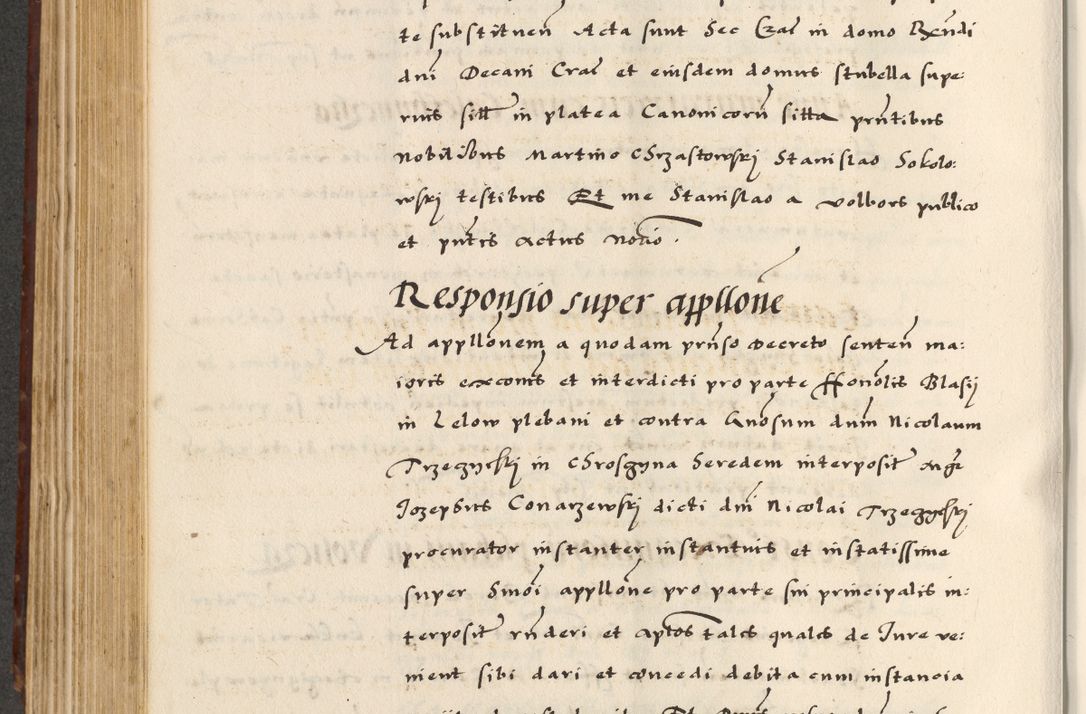 te substituen Acta sunt hec Crac in domo Rendi
dni Decani Crac et eiusdem domus stubella supe:
rius sitt in platea Canonicoru sitta pntibus
Nobilibus Martino Chrzastowskj Stanislao Sokolo:
wskj testibus Et me Stanislao a Volbors publico
et pntis actus notario.
Responsio super appllone
Ad appllonem a quodam prnso Decreto senten ma:
ioris excomis et interdicti pro parte Honolis Blasij
in Lelow plebani et contra Gnosum dnm Nicolaum
Trzegyrskj in Chrosgyna heredem interposit
Jozephus Conarzewskj dicti dni Nicolai Trzegyrskj
procurator instanter instantius et instatissime
super hmoi appllone pro parte sui principalis in:
terposit rnderi et aptos tales quales de Jure ve:
nient sibi dari et concedi debita cum instancia